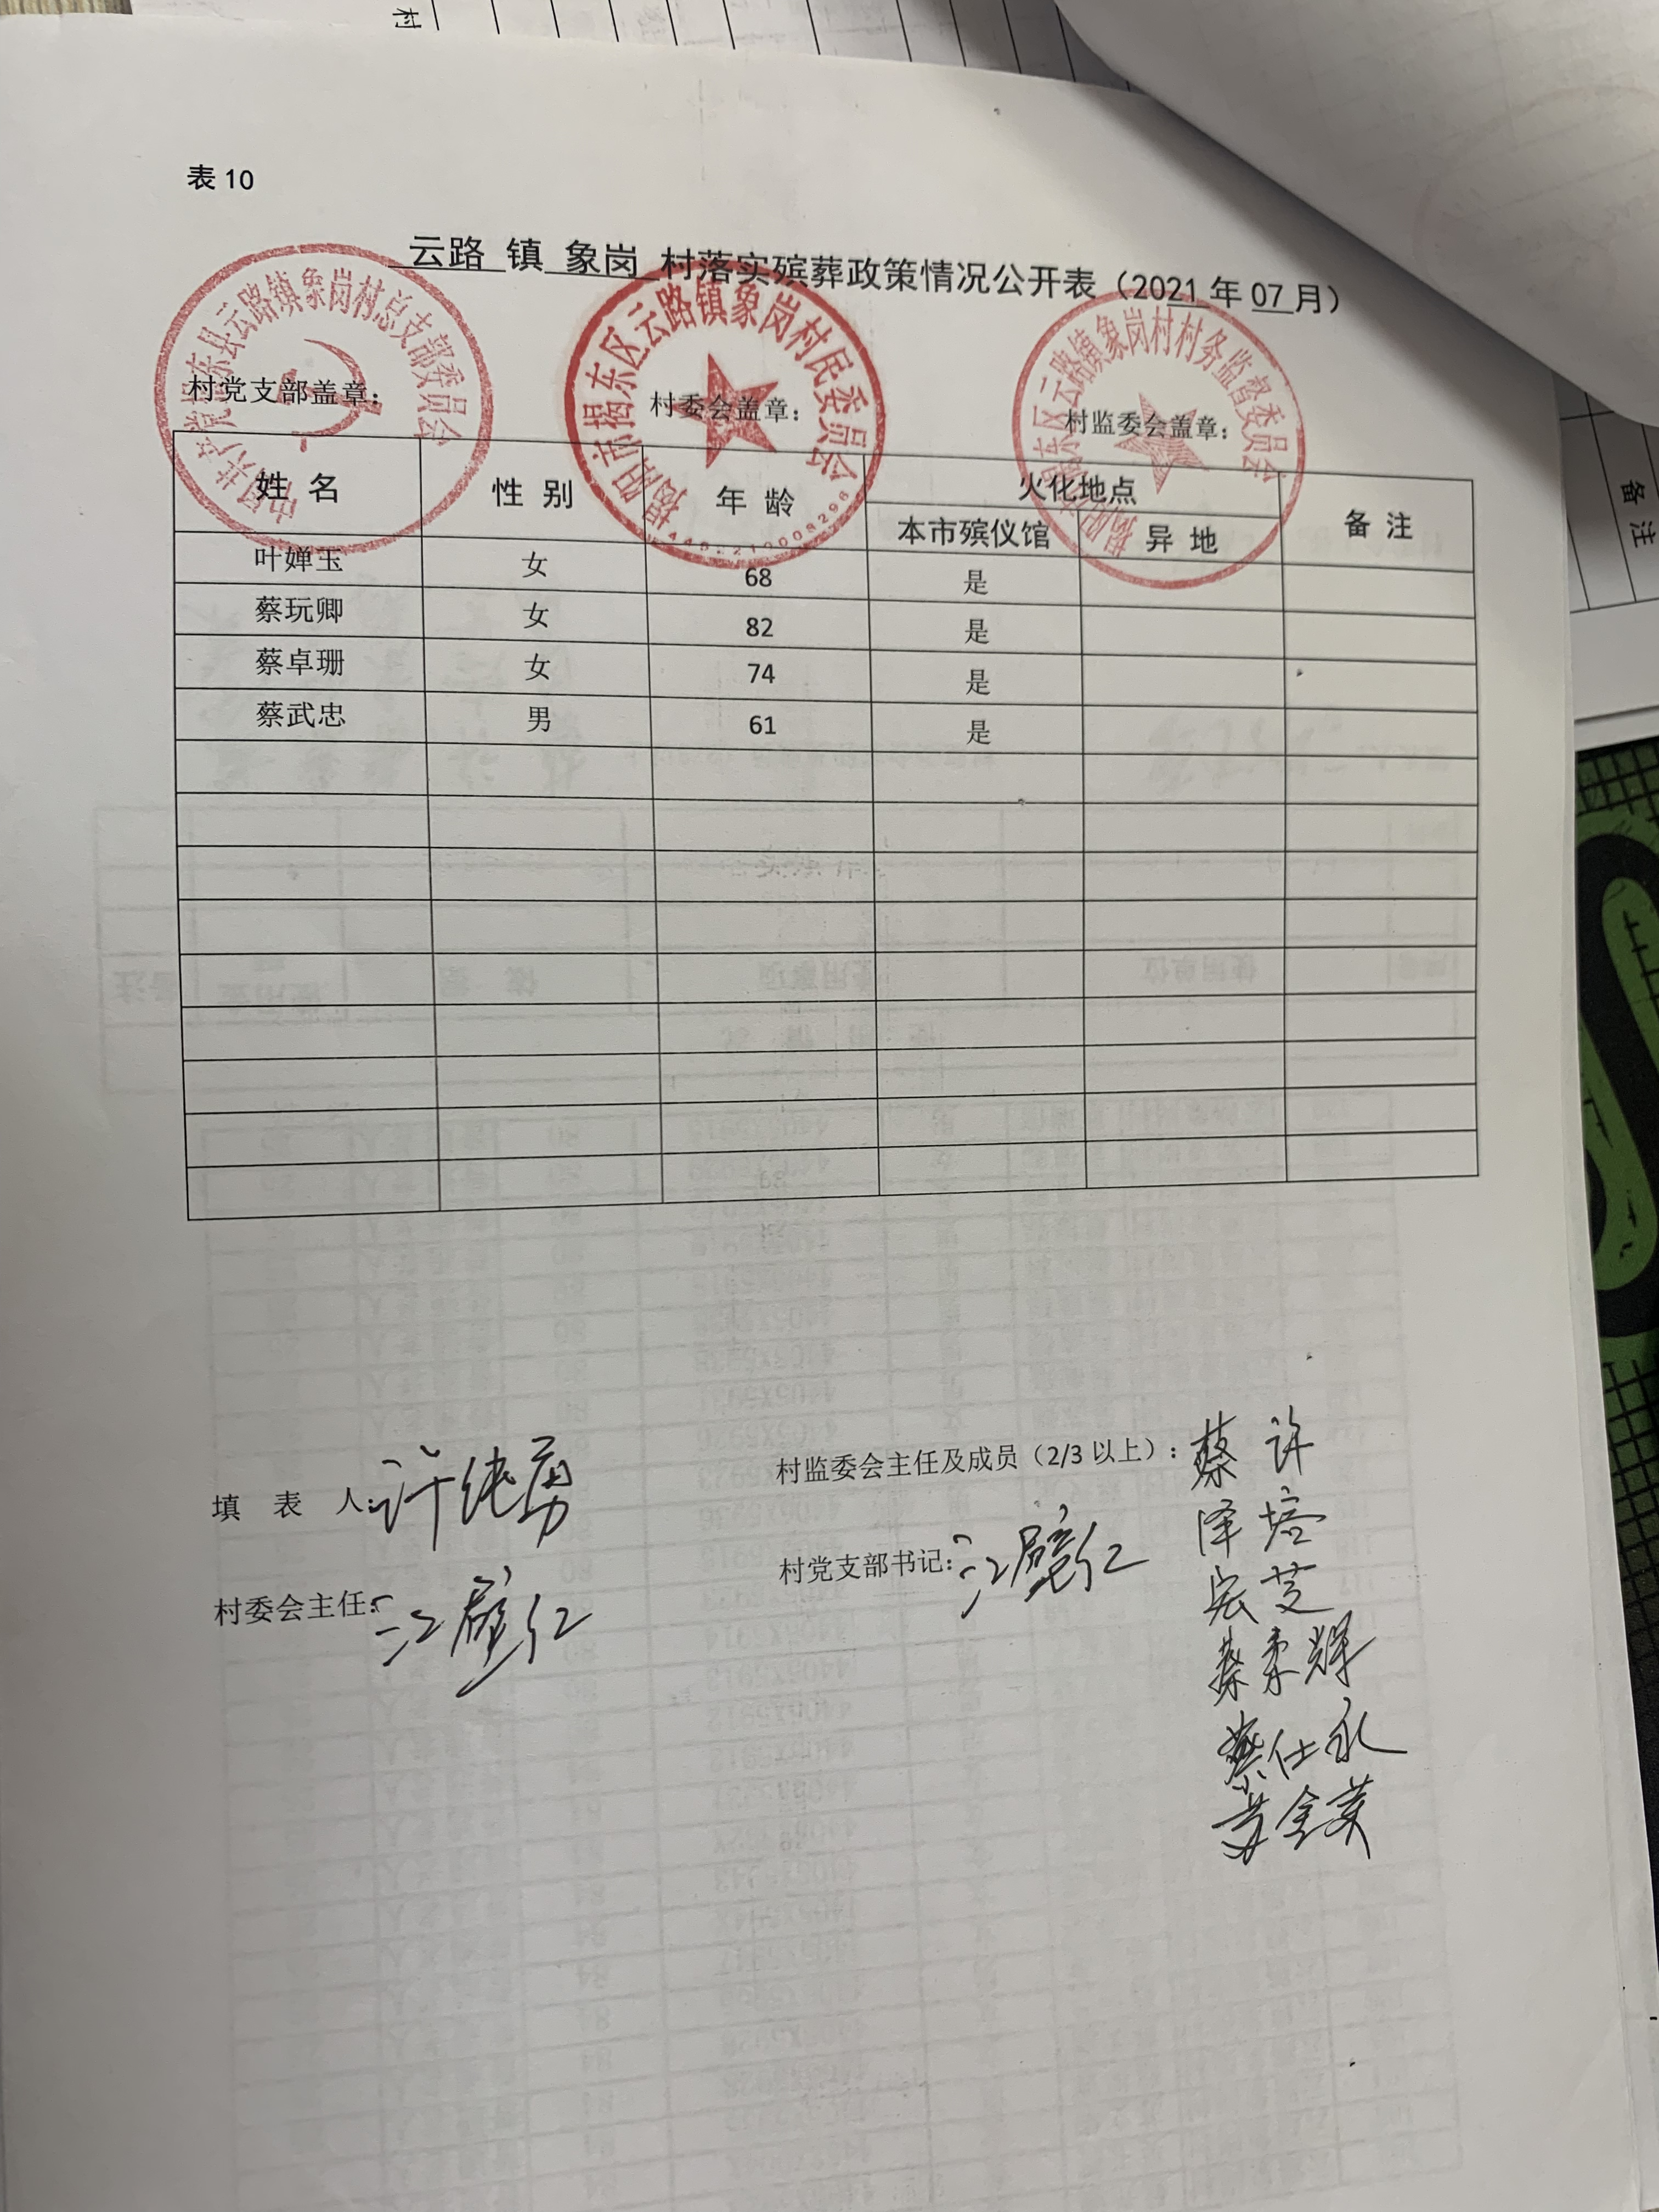 村
表 10
云路 镇 象岗 村落实殡葬政策情况公开表（2021 年 07 月）
中国共产党揭东县云路镇象岗村总支部委员会
揭阳市揭东区云路镇象岗村民委员会
揭阳市揭东区云路镇象岗村村务监督委员会
村党支部盖章： 村委会盖章： 村监委会盖章：
姓 名 性 别 年 龄 火化地点 备 注
本市殡仪馆 异 地
叶婵玉 女 68 是
蔡玩卿 女 82 是
蔡卓珊 女 74 是
蔡武忠 男 61 是
备 注
填 表 人：许纯勇
村监委会主任及成员（2/3 以上）：蔡泽宏 许培芝
村委会主任：江壁仁
村党支部书记：江壁仁
蔡素辉
蔡仕永
黄金英